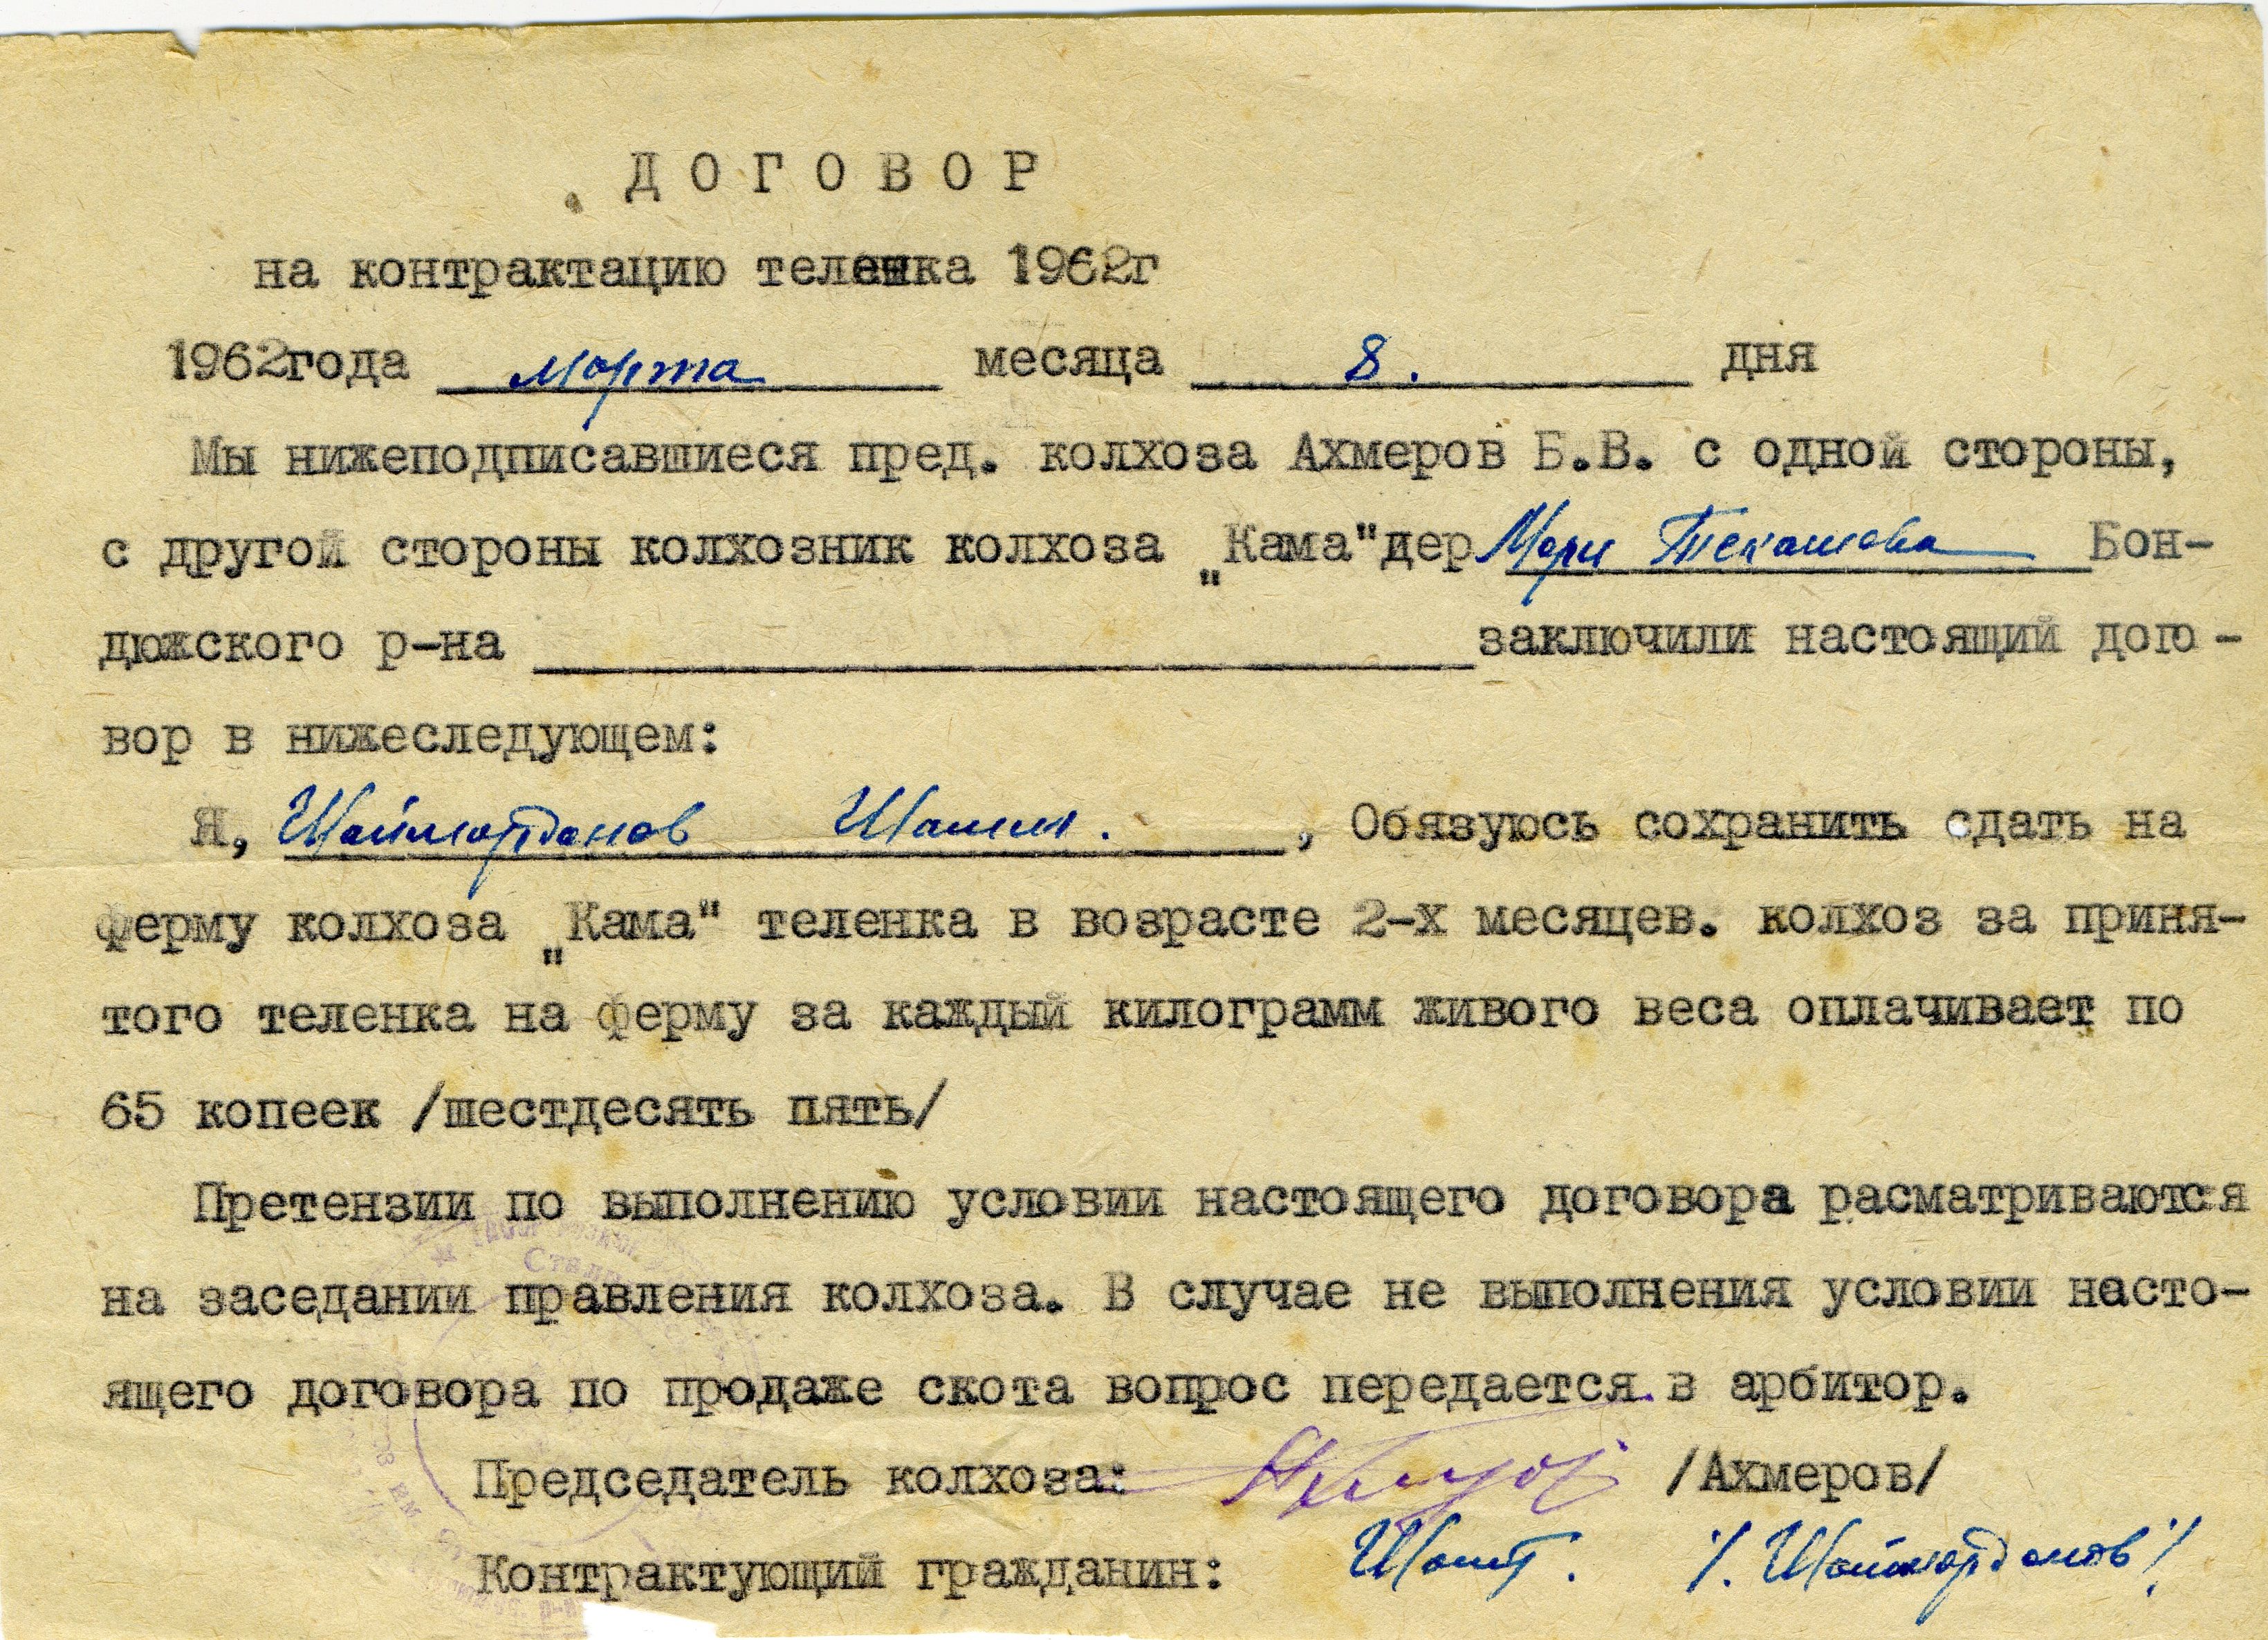 ДОГОВОР
на контрактацию теленка 1962г
1962года марта месяца 8. дня
Мы нижеподписавшиеся пред. колхоза Ахмеров Б.В. с одной стороны,
с другой стороны колхозник колхоза „Кама" дер Мари Текашева Бон-
дюжского р-на заключили настоящий дого-
вор в нижеследующем:
Я, Шаймарданов Шамин. , Обязуюсь сохранить сдать на
ферму колхоза „Кама" теленка в возрасте 2-х месяцев. колхоз за приня-
того теленка на ферму за каждый килограмм живого веса оплачивает по
65 копеек /шестдесять пять/
Претензии по выполнению условии настоящего договора расматриваются
на заседании правления колхоза. В случае не выполнения условии насто-
ящего договора по продаже скота вопрос передается в арбитор.
Председатель колхоза: /Ахмеров/
Контрактующий гражданин: /. Шаймарданов /